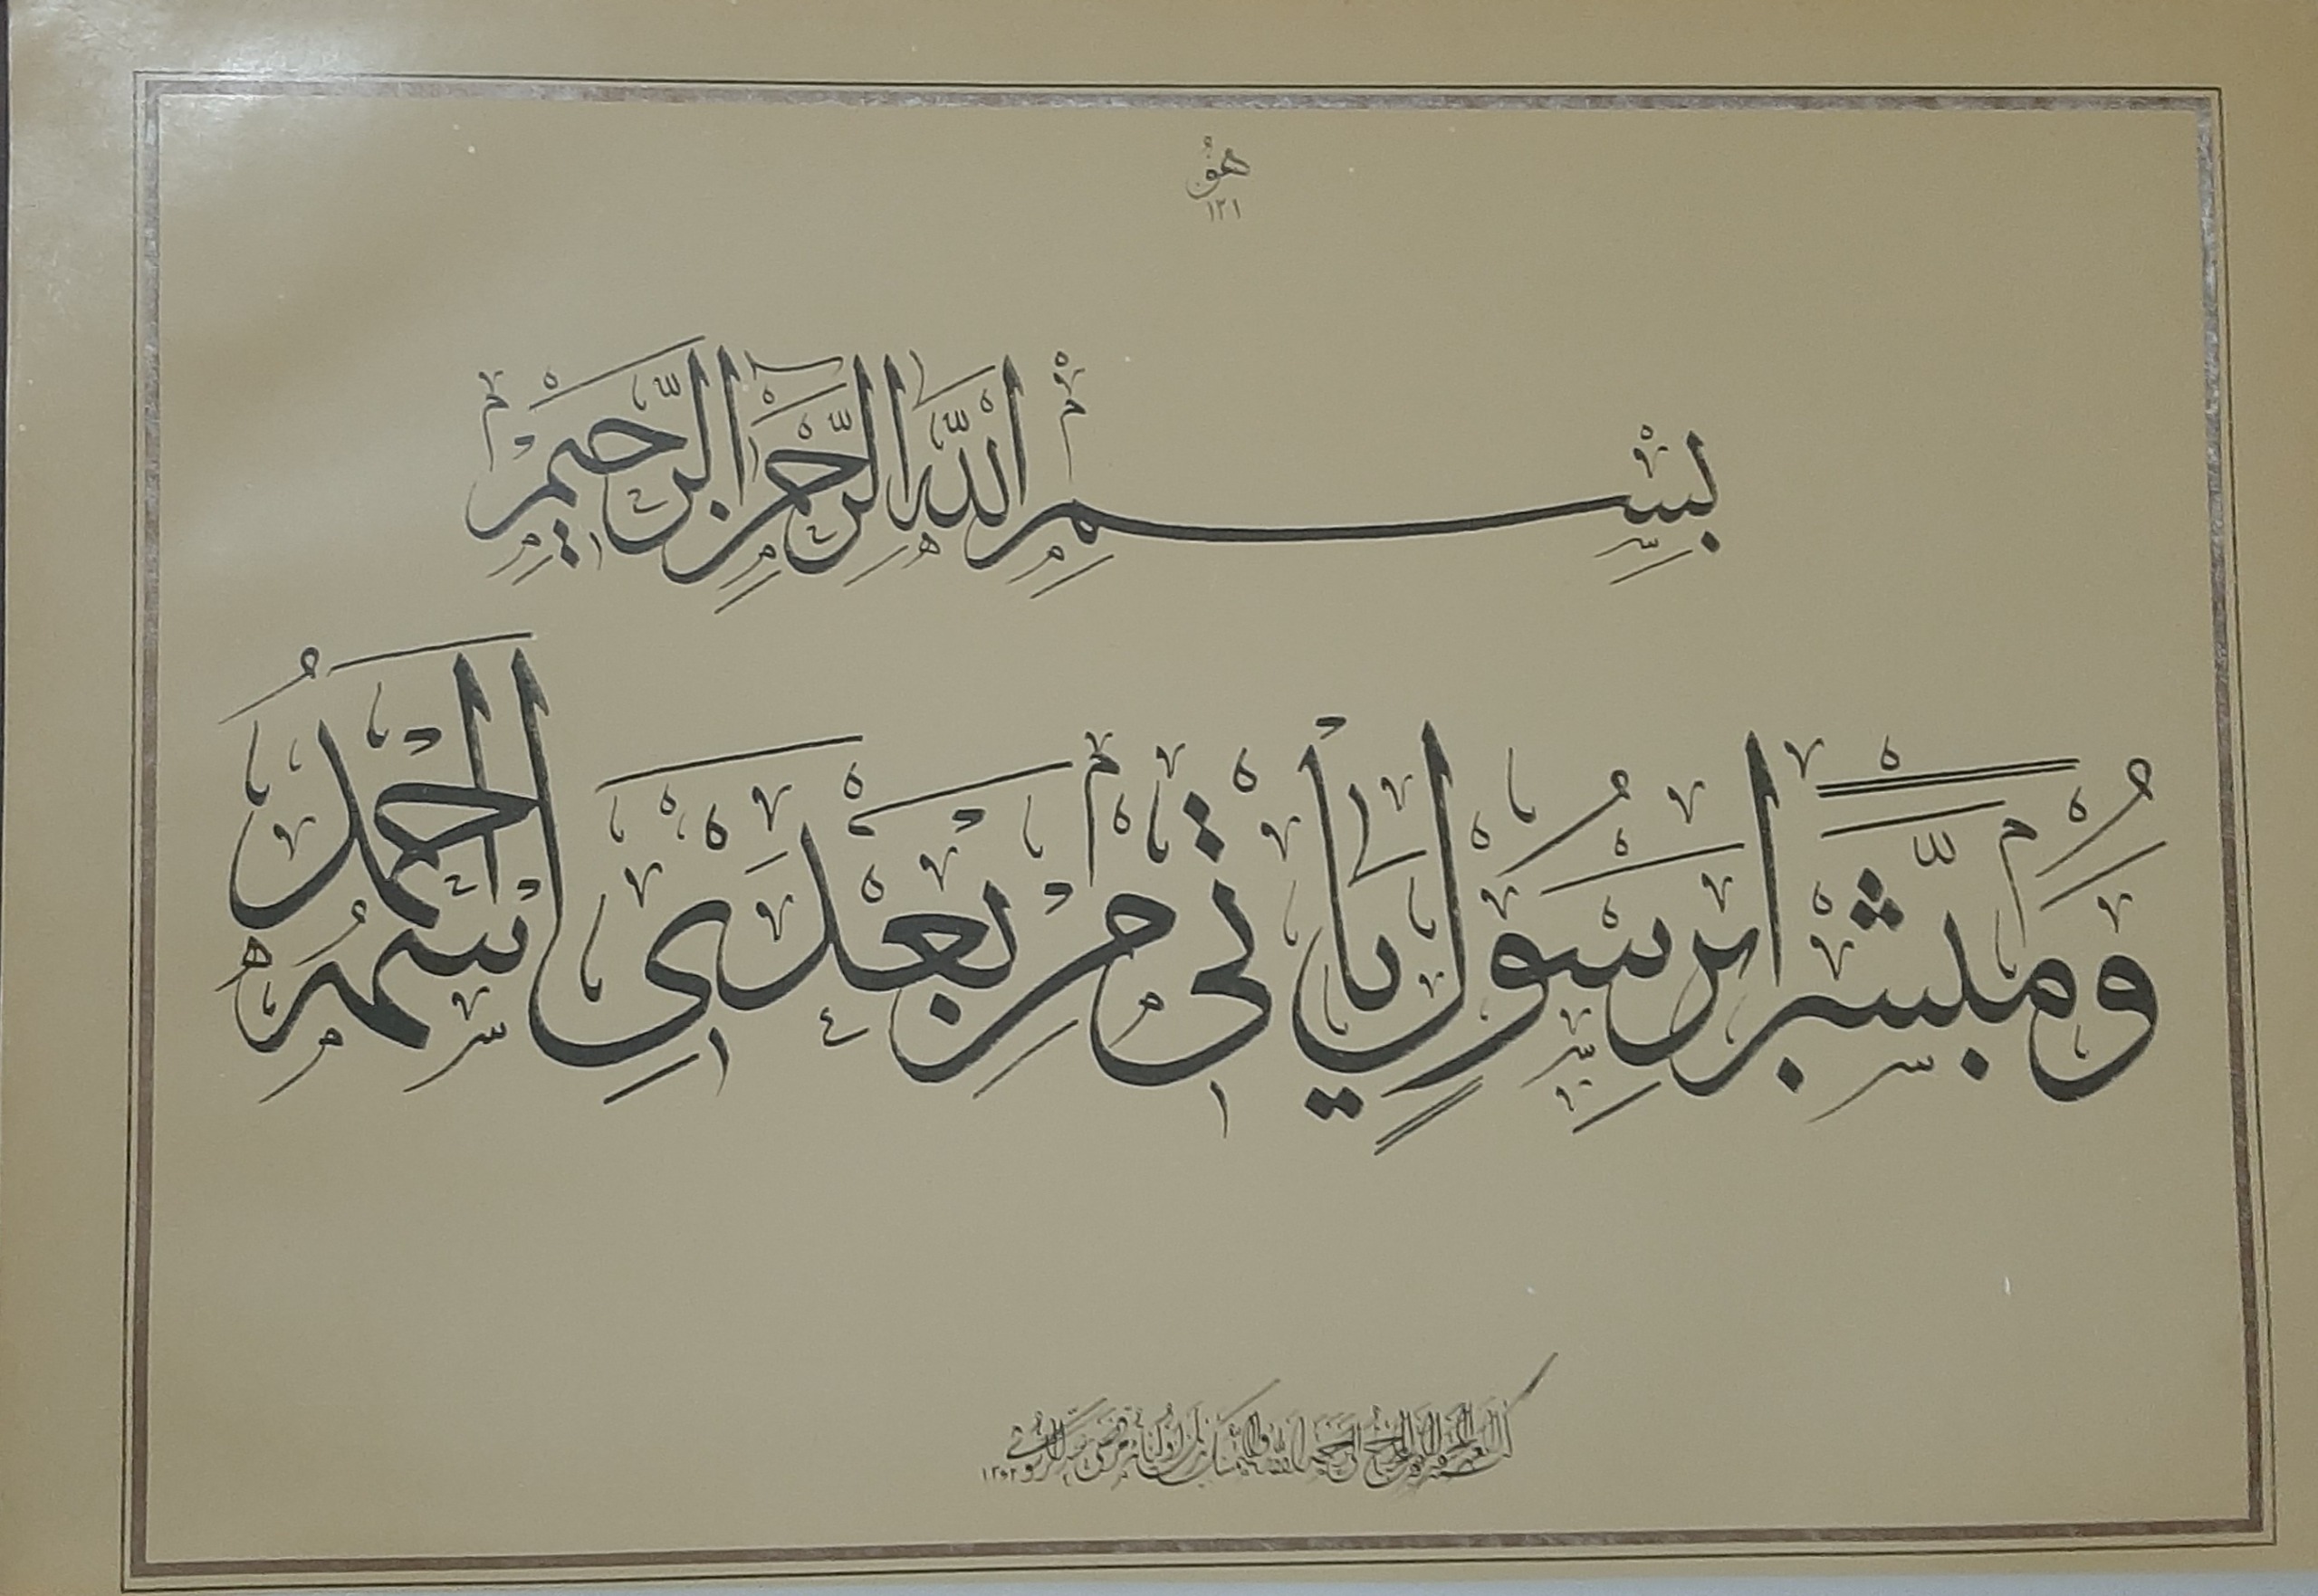 هُو
١٢١
بِسْمِ اللّٰهِ الرَّحْمٰنِ الرَّحِيْمِ
وَمُبَشِّرًا بِرَسُولٍ يَأْتِي مِنْ بَعْدِي اسْمُهُ أَحْمَدُ